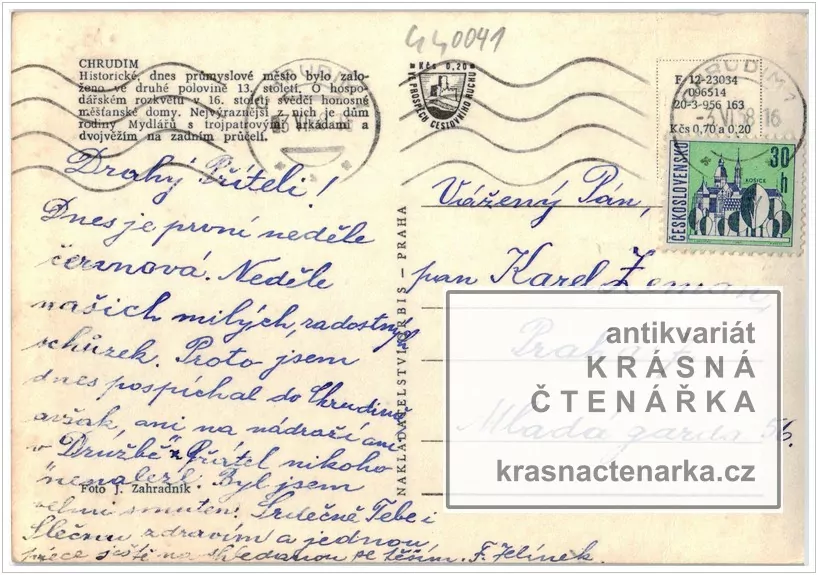 440041
CHRUDIM
Historické, dnes průmyslové město bylo zalo-
ženo ve druhé polovině 13. století. O hospo-
dářském rozkvětu v 16. století svědčí honosné
měšťanské domy. Nejvýraznější z nich je dům
rodiny Mydlářů s trojpatrovými arkádami a
dvojvěžím na zadním průčelí.
Kčs 0,20
VE PROSPĚCH CESTOVNÍHO RUCHU
F 12-23034
/096514
20-3-956 163
Kčs 0,70 a 0,20
CHRUDIM 1
-3 VI 68 16
ČESKOSLOVENSKO
30 h
KOŠICE
Drahý Příteli!
Dnes je první neděle
červnová. Neděle
našich milých, radostných
schůzek. Proto jsem
dnes pospíchal do Chrudimě
avšak, ani na nádraží ani
v "Družbě" Přítel nikoho
nenalezl. Byl jsem
velmi smuten. Srdečně Tebe i
Slečnu zdravím a jednou
přece ještě na shledanou se těším. F. Jelínek.
Foto J. Zahradník
NAKLADATELSTVÍ ORBIS — PRAHA
Vážený Pán,
pan Karel Zeman,
Praha
Mladá garda 56.
antikvariát
KRÁSNÁ
ČTENÁŘKA
krasnactenarka.cz